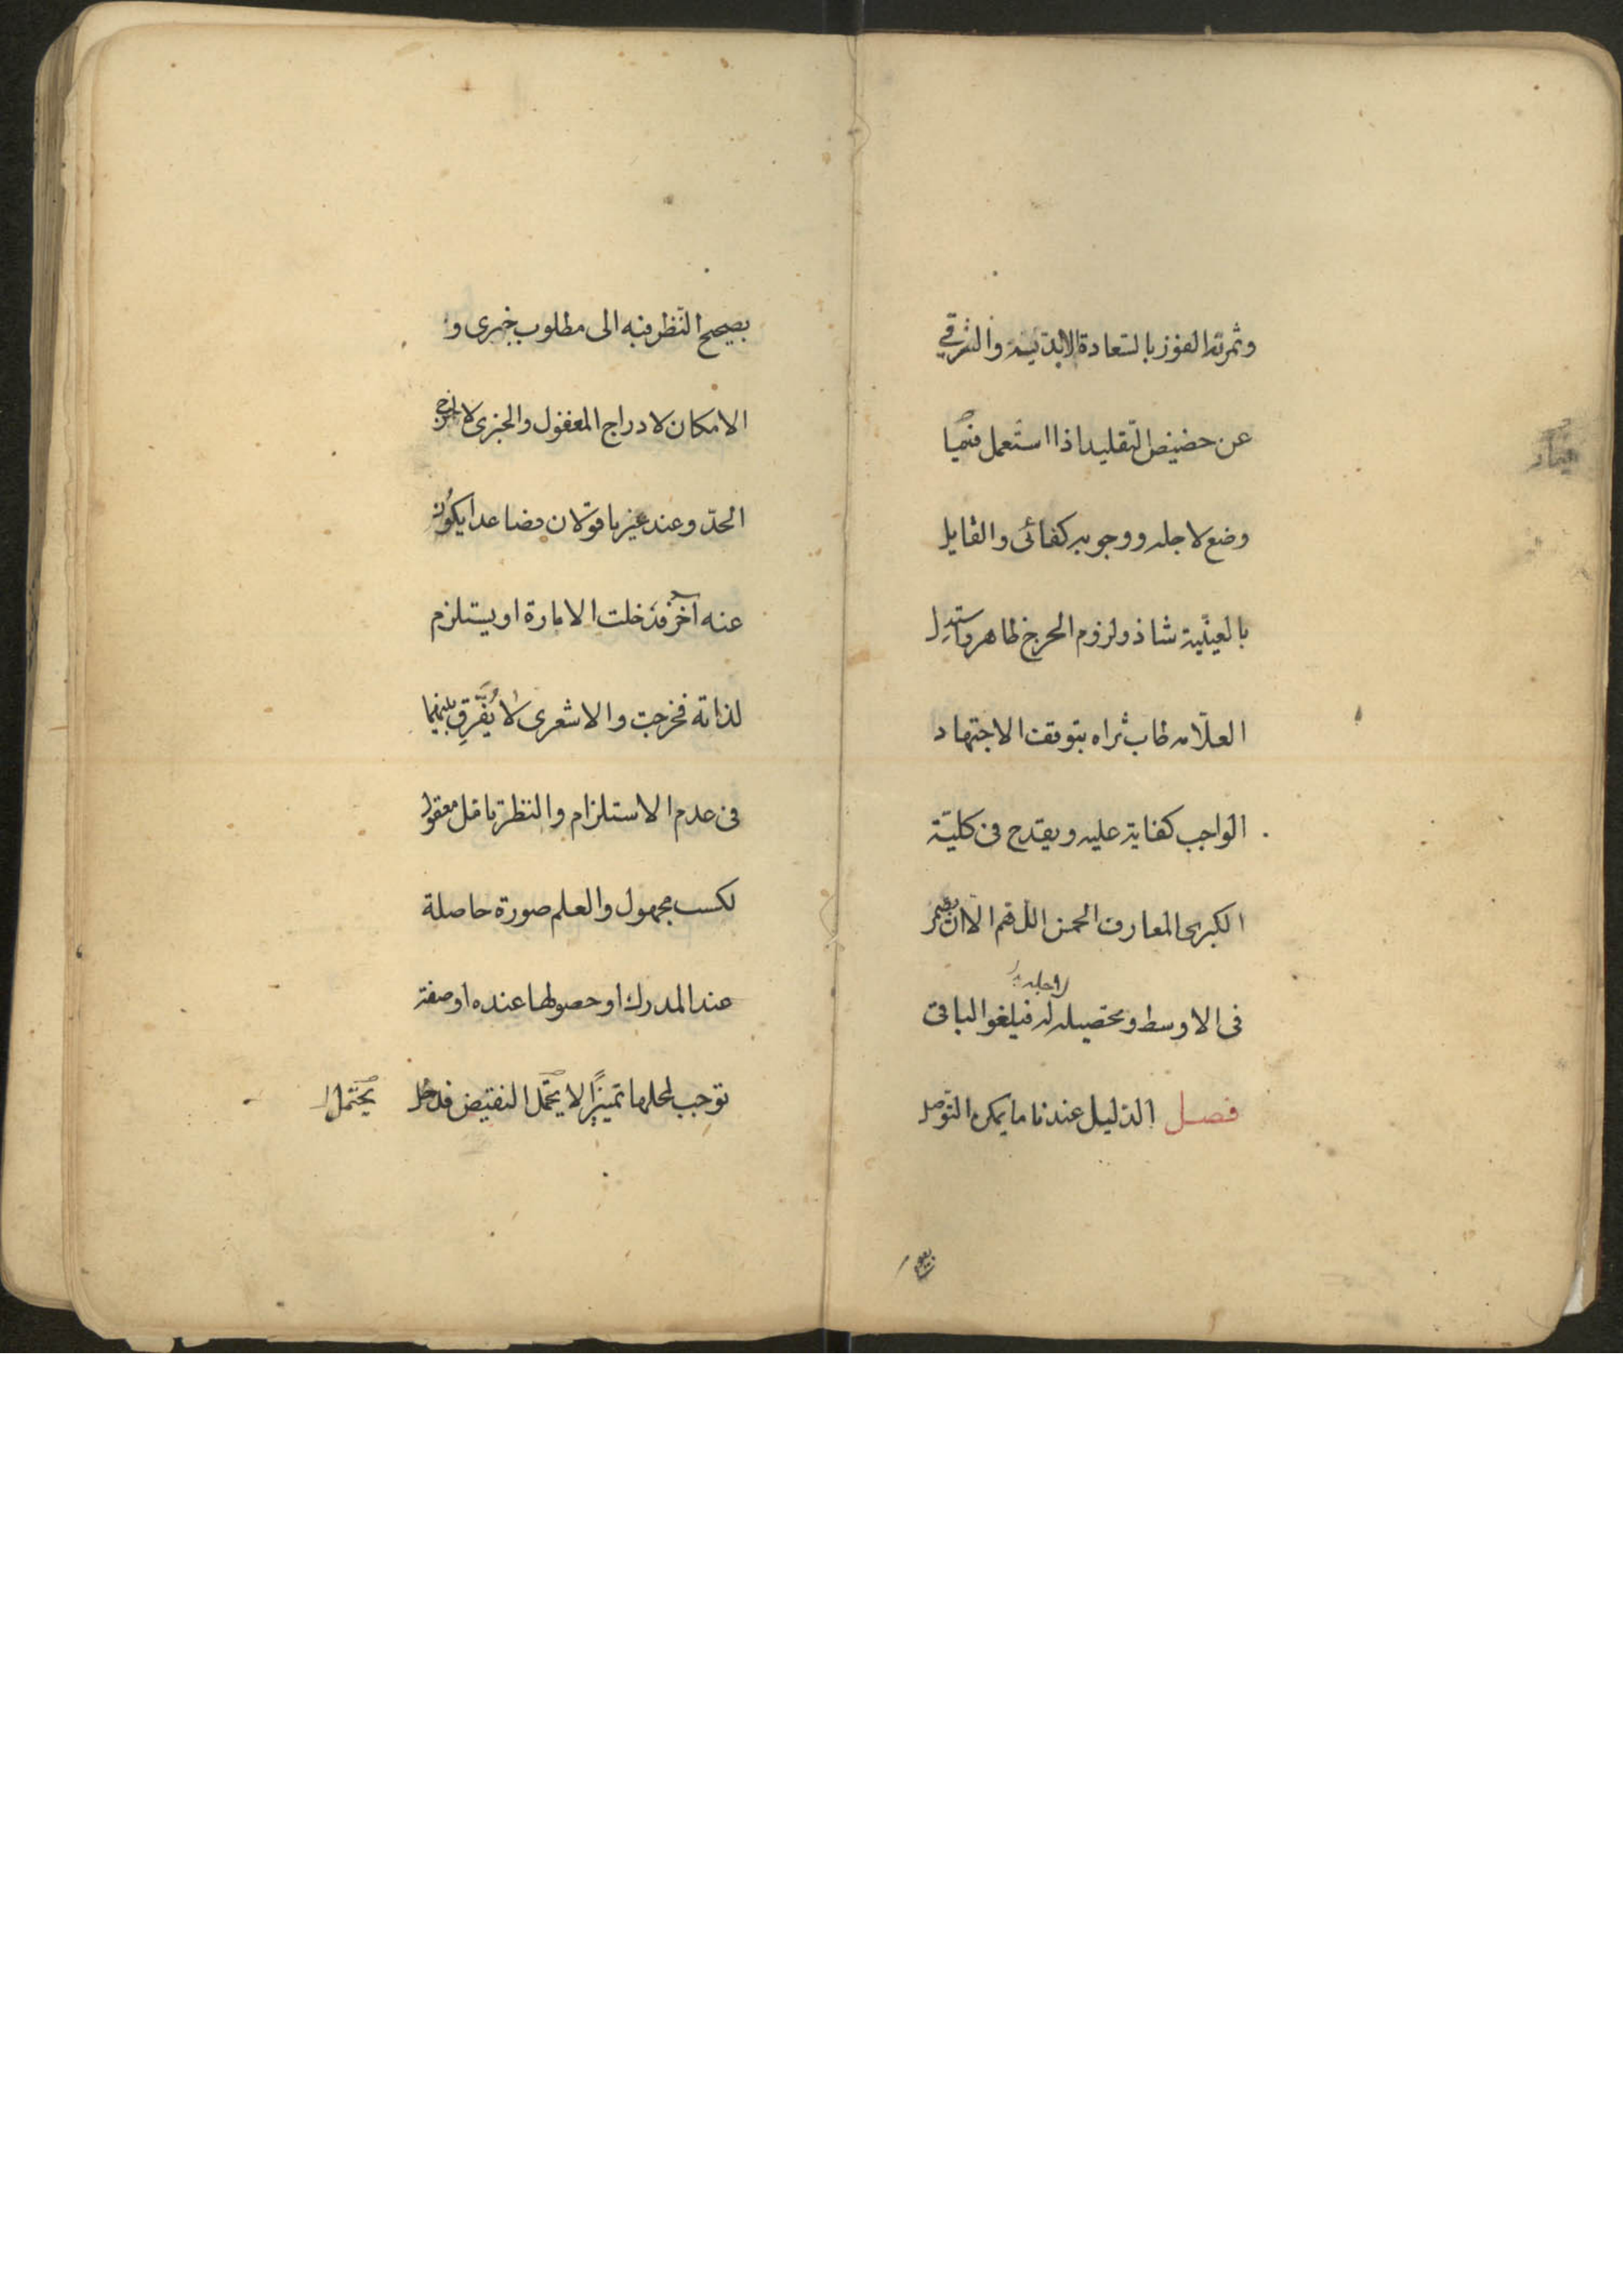 وثمرته الفوز بالسعادة الابدية والترقي
عن حضيض التقليد اذا استعمل فيما
وضع لاجله ووجوبه كفائى والقايل
بالعينية شاذ ولزوم الحرج ظاهر واستدل
العلامه طاب ثراه بتوقف الاجتهاد
الواجب كفاية عليه ويقدح فى كلية
الكبرى المعارف الخمس اللهم الا ان
لاجله
فى الاوسط وتحصيله له فيلغو الباقى
فصل الدليل عندنا ما يمكن التوصل
بصحيح
بصحيح النظر فيه الى مطلوب خبرى و
الامكان لادراج المغفول والخبرى لاخراج
الحد وعند غيرنا قولان فصاعدا يكون
عنه آخر فدخلت الامارة او يستلزم
لذاته فخرجت والاشعرى لا يفرق بينهما
فى عدم الاستلزام والنظر تامل معقول
لكسب مجهول والعلم صورة حاصلة
عند المدرك او حصولها عنده او صفة
توجب لمحلها تميزًا لا يحتمل النقيض فدخل
يحتمل